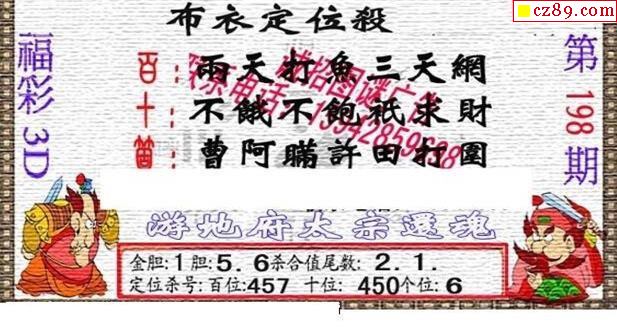 cz89.com
布衣定位殺
福彩3D
第198期
百:兩天打魚三天網
十:不餓不飽祇求財
箇:曹阿瞞許田打圍
游地府太宗還魂
金胆:1胆:5.6杀合值尾数:2.1.
定位杀号:百位:457 十位:450个位:6